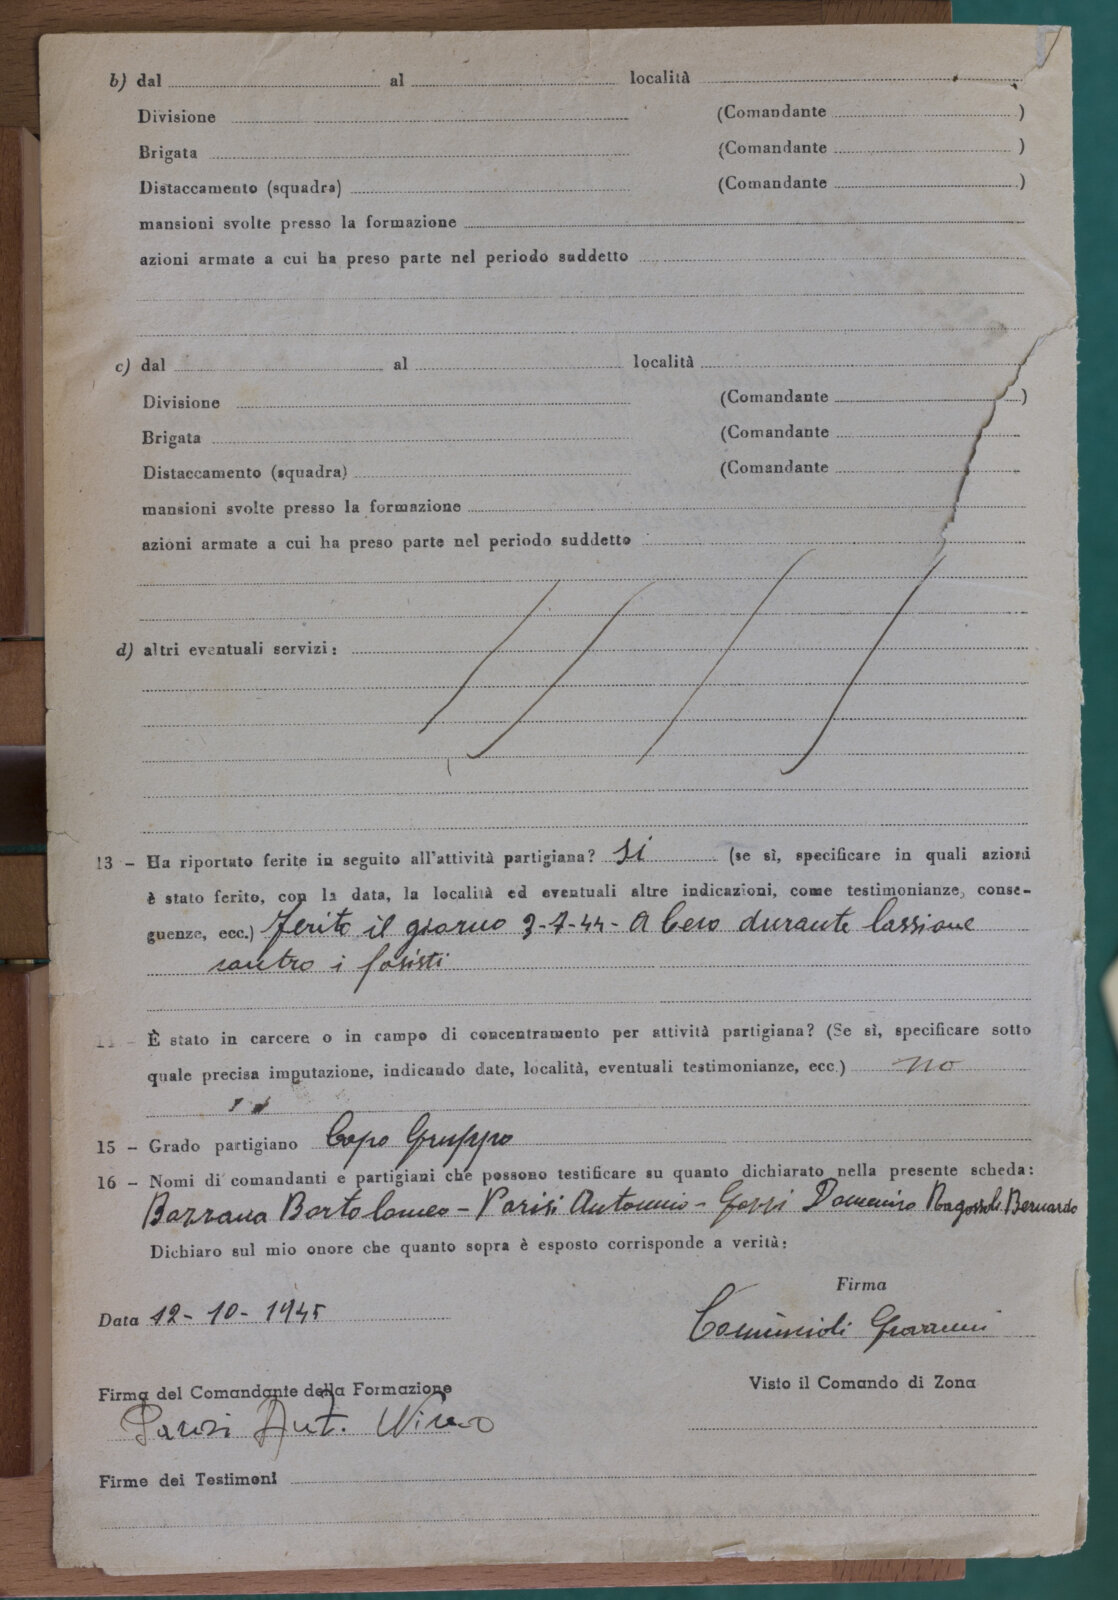 b) dal ........ al ........ località ........
Divisione ........ (Comandante ........ )
Brigata ........ (Comandante ........ )
Distaccamento (squadra) ........ (Comandante ........ )
mansioni svolte presso la formazione ........
azioni armate a cui ha preso parte nel periodo suddetto ........
c) dal ........ al ........ località ........
Divisione ........ (Comandante ........ )
Brigata ........ (Comandante ........
Distaccamento (squadra) ........ (Comandante ........
mansioni svolte presso la formazione ........
azioni armate a cui ha preso parte nel periodo suddetto ........
d) altri eventuali servizi: ........
13 - Ha riportato ferite in seguito all'attività partigiana? si (se sì, specificare in quali azioni
è stato ferito, con la data, la località ed eventuali altre indicazioni, come testimonianze, conse-
guenze, ecc.) ferito il giorno 3-7-44- A Cevo durante lassione
contro i fasisti
14 - È stato in carcere o in campo di concentramento per attività partigiana? (Se sì, specificare sotto
quale precisa imputazione, indicando date, località, eventuali testimonianze, ecc.) no
15 - Grado partigiano Capo Gruppo
16 - Nomi di comandanti e partigiani che possono testificare su quanto dichiarato nella presente scheda:
Bazzana Bortolameo - Parisi Antonnio - Gozzi Domenico Ragazzoli Bernardo
Dichiaro sul mio onore che quanto sopra è esposto corrisponde a verità:
Firma
Data 12-10-1945 Comincioli Giovanni
Firma del Comandante della Formazione Visto il Comando di Zona
Parisi Ant. Nino
Firme dei Testimoni ........